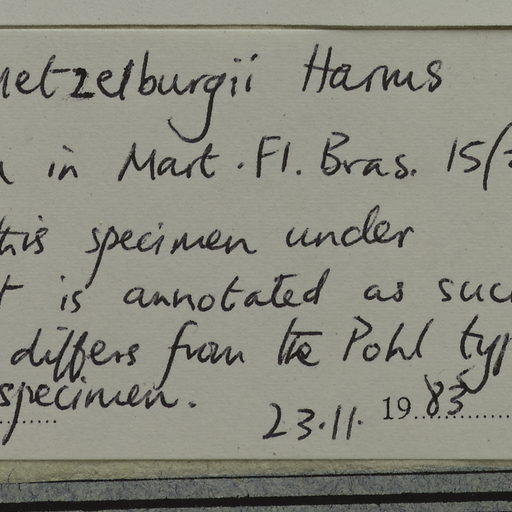 etzelburgii Harms
in Mart. Fl. Bras. 15(
this specimen under
is annotated as suc
differs from the Pohl typ
specimen.
23.11. 1983